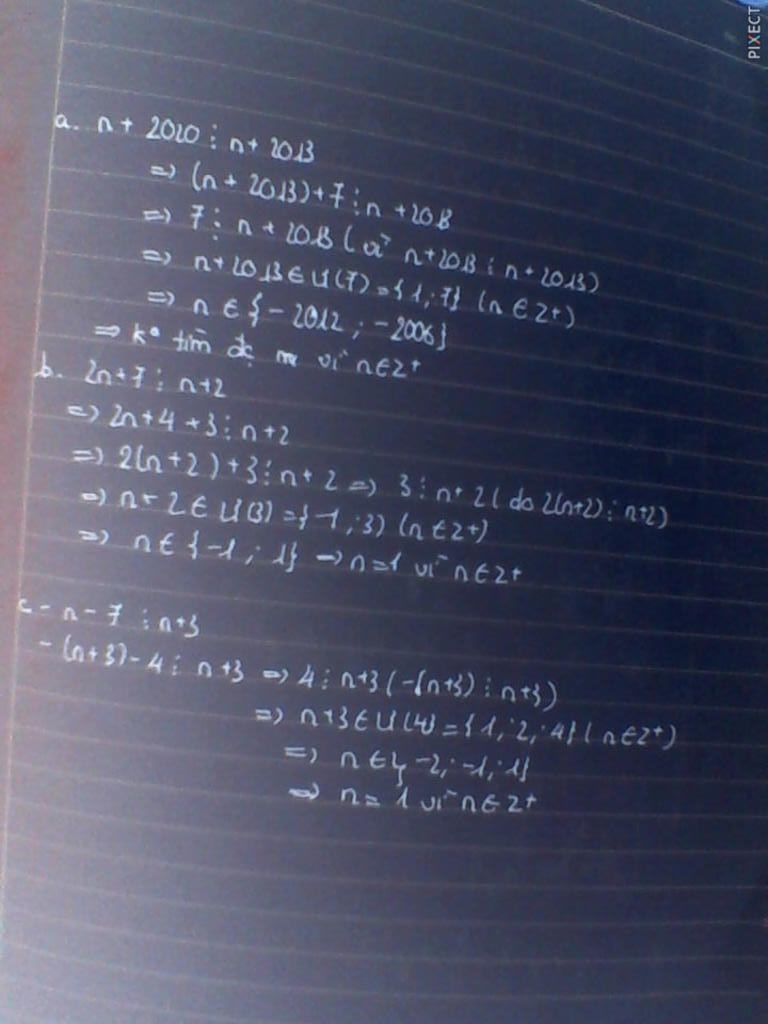 PIXECT
a. n + 2020 ⋮ n + 2013
=> (n + 2013) + 7 ⋮ n + 2013
=> 7 ⋮ n + 2013 ( vì n + 2013 ⋮ n + 2013)
=> n + 2013 ∈ Ư(7) = {1; 7} (n ∈ Z+)
=> n ∈ {-2012; -2006}
=> ko tìm đc vì n ∈ Z+
b. 2n+7 ⋮ n+2
=> 2n+4 +3 ⋮ n+2
=> 2(n+2) +3 ⋮ n+2 => 3 ⋮ n+2 ( do 2(n+2) ⋮ n+2)
=> n+2 ∈ Ư(3) = {1; 3) (n ∈ Z+)
=> n ∈ {-1; 1} => n=1 vì n ∈ Z+
c - n - 7 ⋮ n+3
- (n+3) - 4 ⋮ n+3 => 4 ⋮ n+3 (-(n+3) ⋮ n+3)
=> n+3 ∈ Ư(4) = {1; 2; 4} ( n ∈ Z+)
=> n ∈ {-2; -1; 1}
=> n = 1 vì n ∈ Z+